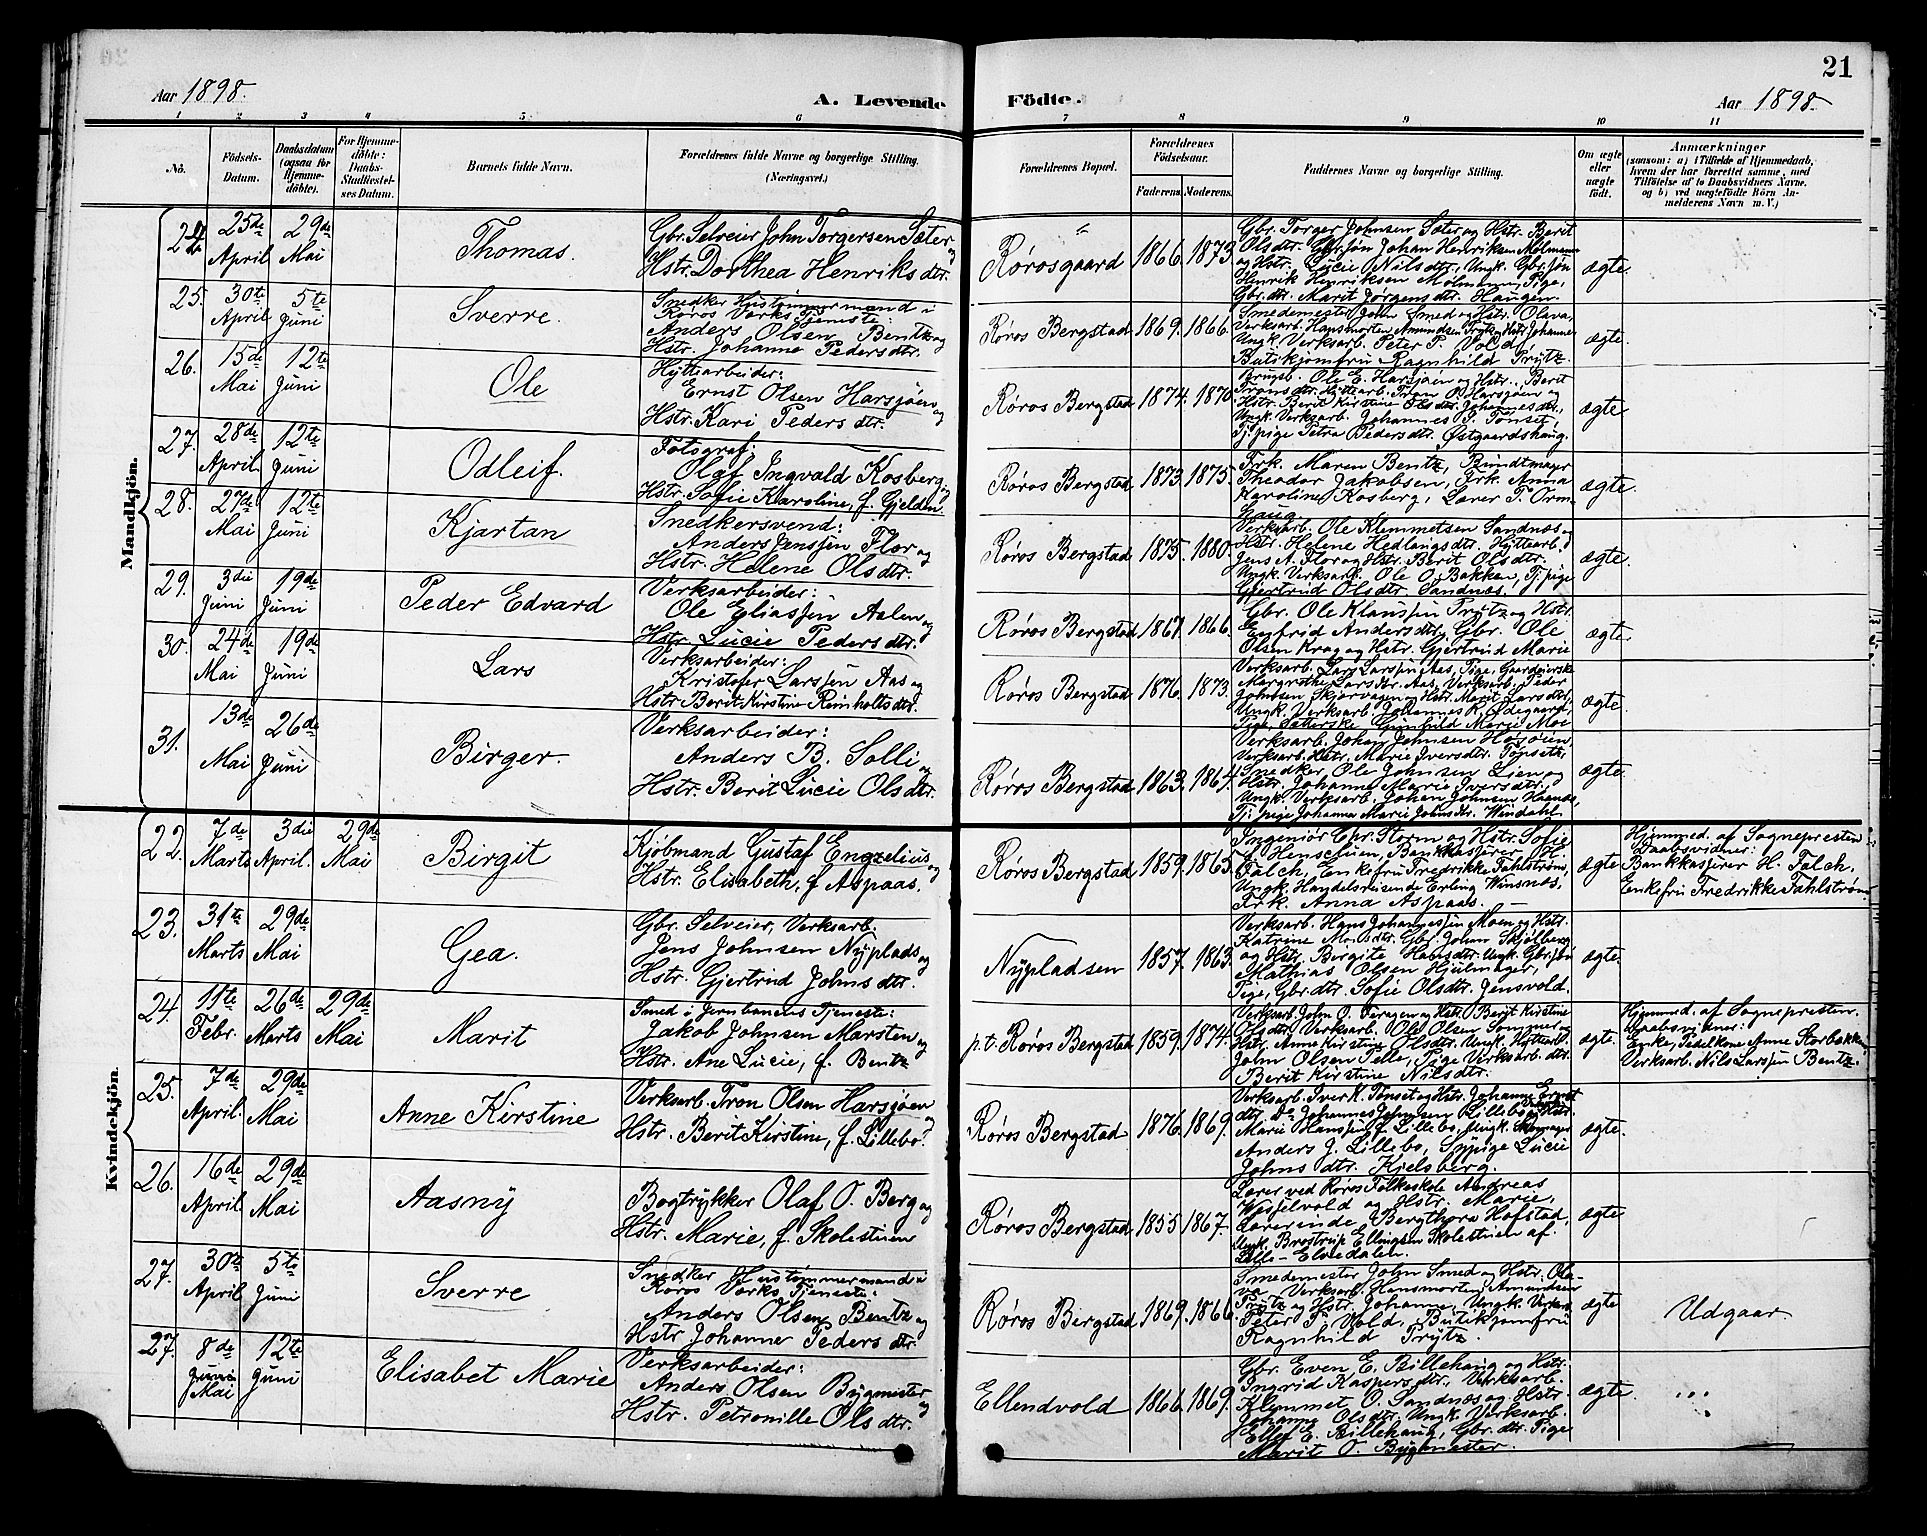 Aar 1898.
A. Levende
Födte.
Aar 1898.
21
1 2 3 4 5 6 7 8 9 10 11
No.
Födsels-
Datum.
Daabsdatum
(ogsaa for
Hjemme-
döbte).
For Hjemme-
döbte:
Daabs-
Stadfæstel-
ses Datum.
Barnets fulde Navn.
Forældrenes fulde Navne og borgerlige Stilling.
(Næringsvei.)
Forældrenes Bopæl.
Forældrenes
Födselsaar.
Faderens. Moderens.
Faddernes Navne og borgerlige Stilling.
Om ægte
eller
uægte
födt.
Anmærkninger
(saasom: a) i Tilfælde af Hjemmedaab,
hvem der har forrettet samme, med
Tilföielse af to Daabsvidners Navne,
og b) ved uægtefödte Börn An-
melderens Navn m. V.)
Mandkjön.
24. 25de April 29de Mai
Thomas.
Gbr. Selveier John Torgersen Sæter og
Hstr. Dorthea Henriksdtr.
Rørosgaard 1866. 1873.
Gbr. Torger Johnsen Sæter og Hstr. Berit
Olsdtr. Gbr.søn Johan Henriksen Mølmann
og Hstr. Lucie Nilsdtr., Ungk. Gbr.søn
Henrik Henriksen Mølmann, Pige,
Gbr.dtr. Marit Jørgensdtr. Haugen.
ægte.
25. 30te April 5te Juni
Sverre.
Snedker Hustømmermand i
Røros Verks Tjeneste:
Anders Olsen Bentz og
Hstr. Johanne Pedersdtr.
Røros Bergstad 1869. 1866.
Smedemester John Smed og Hstr. Olava,
Verksarb. Hansmorten Amundsen Prytz og Hstr. Johanne,
Ungk. Verksarb. Peter P. Vold,
Butikjomfru Ragnhild Prytz.
ægte.
26. 15de Mai 12te Juni
Ole
Hyttearbeider:
Ernst Olsen Harsjøen og
Hstr. Kari Pedersdtr.
Røros Bergstad 1874. 1870.
Brugsb. Ole E. Harsjøen og Hstr. Berit
Tronsdtr. Hyttearb. Tron O. Harsjøen og
Hstr. Berit Kirstine Johannesdtr.,
Ungk. Verksarb. Johannes P. Tønset,
Tj.pige Petra Pedersdtr. Østgaardshaug.
ægte.
27. 28de April. 12te Juni
Odleif.
Fotograf:
Olaf Ingvald Kosberg og
Hstr. Sofie Karoline, f. Gjelden.
Røros Bergstad 1873. 1875.
Frk. Maren Bentz, Bundtmager
Theodor Jakobsen, Frk. Anna
Karoline Kosberg, Lærer P. Orm-
haug.
ægte.
28. 27de Mai 12te Juni
Kjartan
Snedkersvend:
Anders Jenssen Flor og
Hstr. Helene Olsdtr.
Røros Bergstad 1875. 1880.
Verksarb. Ole Klemmetsen Sandnæs,
Hstr. Helene Hedlangsdtr. Hyttearb.
Jens A. Flor og Hstr. Berit Olsdtr.
Ungk. Verksarb. Ole O. Bakken, Tj.pige
Gjertrud Olsdtr. Sandnæs.
ægte.
29. 3die Juni 19de Juni
Peder Edvard
Verksarbeider:
Ole Eliassen Aalen og
Hstr. Lucie Pedersdtr.
Røros Bergstad 1867. 1866.
Gbr. Ole Klaussen Prytz og Hstr.
Enfrid Andersdtr., Gbr. Ole
Olsen Krag og Hstr. Gjertrud Marie
ægte.
30. 24de Mai 19de Juni
Lars
Verksarbeider:
Kristofer Larssen Aas og
Hstr. Berit Kirstine Reinholtsdtr.
Røros Bergstad 1876. 1873.
Verksarb. Lars Larssen Aas, Pige, Gaardeierske
Margrethe Larsdtr. Aas, Verksarb. Peder
Johnsen Skjørvagen og Hstr. Marit Larsdtr.,
Ungk. Verksarb. Johannes K. Ødegaard,
Pige Gunhild Marie Moi
ægte.
31. 13de Mai 26de Juni
Birger.
Verksarbeider:
Anders B. Solli og
Hstr. Berit Lucie Olsdtr.
Røros Bergstad 1863. 1864.
Verksarb. Johan Johnsen Høsøien,
Verksarb. Hstr. Marie Iversdtr. Tønset,
Snedker Ole Johnsen Lien og
Hstr. Johanne Marie Iversdtr.,
Ungk. Verksarb. Johen Johnsen
Tj.pige Johanna Marie Johnsdtr. Windahl
ægte.
Kvindekjön.
22. 7de Marts 3die April. 29de Mai
Birgit
Kjøbmand Gustaf Engzelius og
Hstr. Elisabeth, f. Aspaas.
Røros Bergstad 1859. 1865.
Ingeniør Chr. Storm og Hstr. Sofie
f. Henschien, Bankkasjerer H.
Falch, Enkefru Fredrikke Fahlstrøm,
Ungk. Handelsreisende Erling Winsnæs,
Frk. Anna Aspaas. —
ægte.
Hjemmed. af Sognepresten.
Daabsvidner:
Bankkasjerer H. Falch.
Enkefru Fredrikke Fahlstrøm
23. 31te Marts 29de Mai
Gea.
Gbr. Selveier, Verksarb.
Jens Johnsen Nyplads og
Hstr. Gjertrud Johnsdtr.
Nypladsen 1857. 1863.
Verksarb. Hans Johannessen Moen og Hstr.
Katrine Gbr. Johan Skjølberg
og Hstr. Birgite Hansdtr. Ungk. Gbr.søn
Mathias Olsen Hjulmager,
Pige, Gbr.dtr. Sofie Olsdtr. Jensvold.
ægte.
24. 11te Febr. 26de Marts 29de Mai
Marit
Smed i Jernbanens Tjeneste:
Jakob Johnsen Marsten og
Hstr. Ane Lucie, f. Bentz
p.t. Røros Bergstad 1859. 1874.
Verksarb. John O. Feragen og Hstr. Berit Kirstine
Olsdtr. Verksarb. Ole Olsen Sommer og
Hstr. Anne Kirstine Olsdtr. Ungk. Hyttearb.
John Olsen Telle, Pige Verksarb.dtr.
Berit Kirstine Nilsdtr.
ægte.
Hjemmed. af Sognepresten.
Daabsvidner:
Enke, Pedelkone Anne Storbækken
Verksarb. Nils Larssen Bentz.
25. 7de April. 29de Mai
Anne Kirstine
Verksarb. Tron Olsen Harsjøen og
Hstr. Berit Kirstine, f. Lillebo.
Røros Bergstad 1876. 1869.
Verksarb. Iver K. Tønset og Hstr. Johanne Ernst
dtr. Do Johannes Johnsen Lillebo og Hstr.
Marie Hanssen f. Lillebo, Ungk. Skomager
Anders J. Lillebo, Sypige Lucie
Johnsdtr. Kjelsberg.
ægte.
26. 16de April. 29de Mai
Aasny
Bogtrykker Olaf O. Berg og
Hstr. Marie, f. Skolestuen
Røros Bergstad 1855. 1867.
Lærer ved Røros Folkeskole Andreas
Wesselvold og Hstr. Marie,
Lærerinde Bergthora Hofstad,
Ungk. Brostrup Ellingsen Skolestuen af
Lille-Elvedalen.
ægte.
27. 30te April 5te Juni
Sverre
Snedker Hustømmermand i
Røros Verks Tjeneste:
Anders Olsen Bentz og
Hstr. Johanne Pedersdtr.
Røros Bergstad 1869. 1866.
Smedemester John Smed og Hstr. Ola-
va, Verksarb. Hansmorten Amundsen
Prytz og Hstr. Johanne, Ungk. Verksarb.
Peter P. Vold, Butikjomfru
Ragnhild Prytz.
ægte
Udgaar.
27. 8de Juni Mai 12te Juni
Elisabet Marie
Verksarbeider:
Anders Olsen Bygmester og
Hstr. Petronille Olsdtr.
Ellendvold 1866. 1869.
Gbr. Even E. Billehaug og Hstr.
Ingrid Kaspersdtr., Verksarb.
Klemmet O. Sandnæs og Hstr.
Johanne Olsdtr. Ungk. Verksarb.
Ellef E. Billehaug, Gbr.dtr. Pige
Marit O. Bygmester.
ægte.